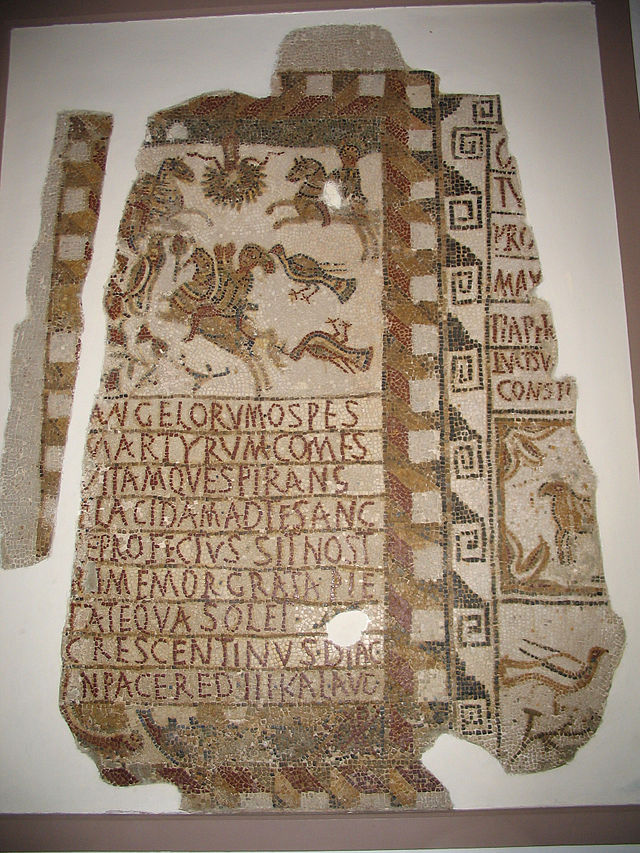 ANGELORVMOSPES
MARTYRVMCOMES
VITAMQVESPIRANS
PLACIDAMADTESANC
TEPROFECTVS·SITNOST
RIMEMOR·GRATA·PIE
TATEQVASOLET
CRESCENTINVS·DIAC
INPACE·RED·III·KALAVG
TV
PRO
CONST